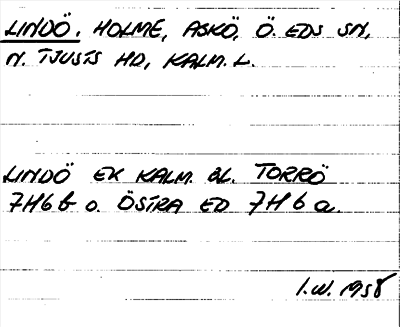 LINDÖ, HOLME, ASKÖ, Ö. EDS SN,
N. TJUSTS HD, KALM. L.
LINDÖ EK KALM. BL. TORRÖ
7H6b o. ÖSTRA ED 7H6a.
I.W. 1958